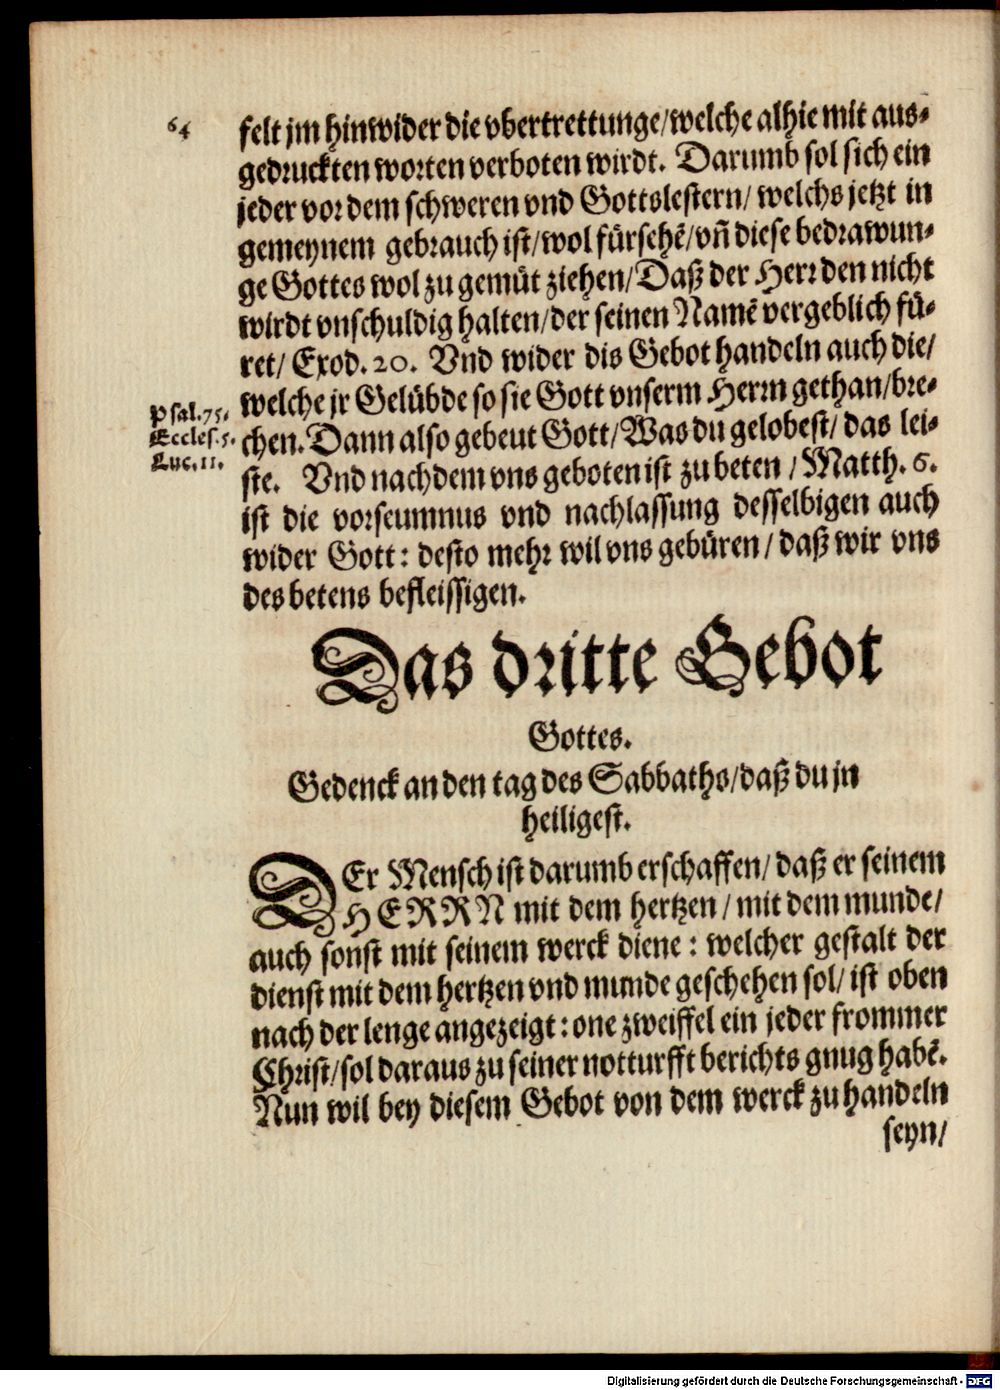 64
felt jm hinwider die vbertrettunge/welche alhie mit aus-
gedruckten worten verboten wirdt. Darumb sol sich ein
jeder vor dem schweren vnd Gottslestern/ welchs jetzt in
gemeynem gebrauch ist/wol fürsehẽ/vñ diese bedrawun-
ge Gottes wol zu gemüt ziehen/Daß der Herr den nicht
wirdt vnschuldig halten/der seinen Namẽ vergeblich fü-
ret/ Exod. 20. Vnd wider dis Gebot handeln auch die/
welche jr Gelübde so sie Gott vnserm Herrn gethan/bre-
chen. Dann also gebeut Gott/Was du gelobest/ das lei-
ste. Vnd nach dem vns geboten ist zu beten / Matth. 6.
ist die vorseumnus vnd nachlassung desselbigen auch
wider Gott: desto mehr wil vns gebüren/ daß wir vns
des betens befleissigen.
Psal. 75.
Eccles. 5.
Luc. 11.
Das dritte Gebot
Gottes.
Gedenck an den tag des Sabbaths/daß du jn
heiligest.
DEr Mensch ist darumb erschaffen/ daß er seinem
HERRN mit dem hertzen / mit dem munde/
auch sonst mit seinem werck diene : welcher gestalt der
dienst mit dem hertzen vnd munde geschehen sol/ ist oben
nach der lenge angezeigt : one zweiffel ein jeder frommer
Christ/sol daraus zu seiner notturfft berichts gnug habẽ.
Nun wil bey diesem Gebot von dem werck zu handeln
seyn/
Digitalisierung gefördert durch die Deutsche Forschungsgemeinschaft - DFG